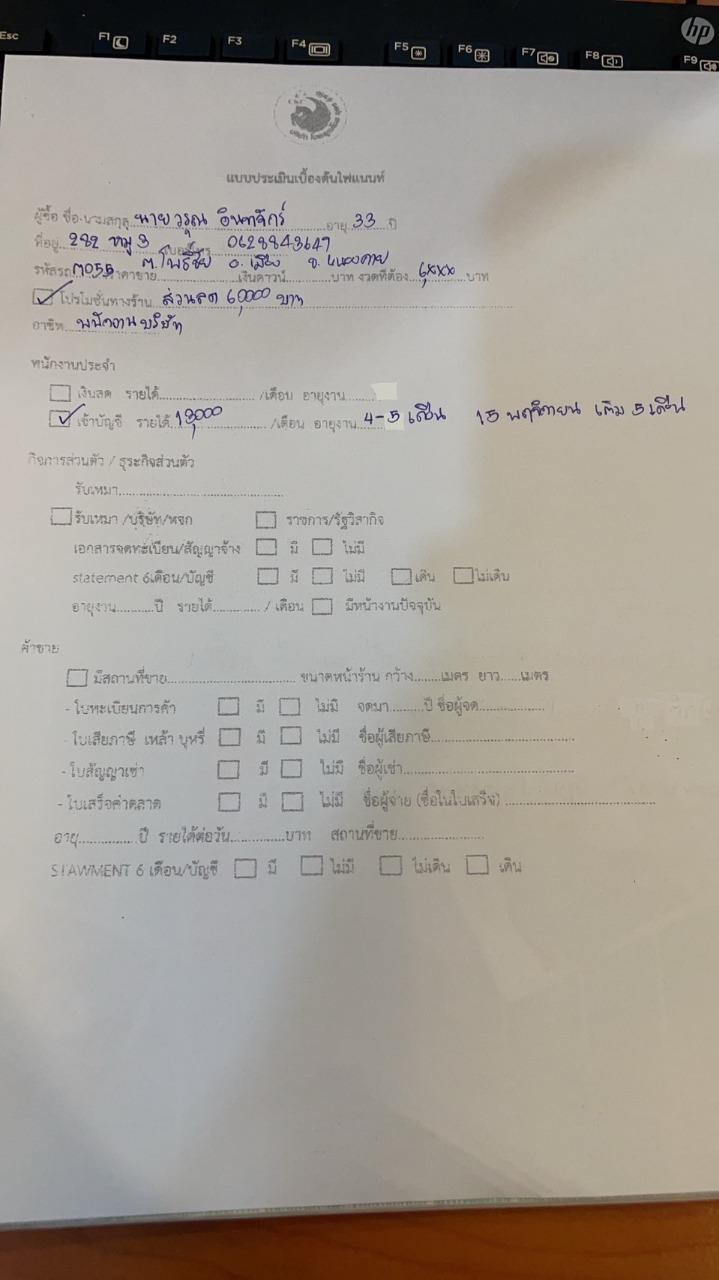 Esc F1 F2 F3 F4 F5 F6 F7 F8 F9
hp
แบบประเมินเบื้องต้นไฟแนนท์
ผู้ซื้อ ชื่อ-นามสกุล นายวรุณ อินทจักร์ อายุ 33 ปี
ที่อยู่ 282 หมู่ 3 เบอร์โทร 0628843647
ต.โพธิ์ชัย อ.เมือง จ.หนองคาย
รหัสรถ M055 ราคาขาย............เงินดาวน์............บาท งวดที่ต้อง 6,xxx บาท
โปรโมชั่นทางร้าน ส่วนลด 60,000 บาท
อาชีพ พนักงานบริษัท
พนักงานประจำ
เงินสด รายได้............/เดือน อายุงาน............
เข้าบัญชี รายได้ 13,000 /เดือน อายุงาน 4-5 เดือน 15 พฤศจิกายน เต็ม 5 เดือน
กิจการส่วนตัว / ธุระกิจส่วนตัว
รับเหมา............
รับเหมา /บริษัท/หจก ราชการ/รัฐวิสากิจ
เอกสารจดทะเบียน/สัญญาจ้าง มี ไม่มี
statement 6เดือน/บัญชี มี ไม่มี เดิน ไม่เดิน
อายุงาน............ปี รายได้............/ เดือน มีหน้างานปัจจุบัน
ค้าขาย
มีสถานที่ขาย............ ขนาดหน้าร้าน กว้าง........เมตร ยาว......เมตร
- ใบทะเบียนการค้า มี ไม่มี จดมา.........ปี ชื่อผู้จด............
- ใบเสียภาษี เหล้า บุหรี่ มี ไม่มี ชื่อผู้เสียภาษี............
- ใบสัญญาเช่า มี ไม่มี ชื่อผู้เช่า............
- ใบเสร็จค่าตลาด มี ไม่มี ชื่อผู้จ่าย (ชื่อในใบเสร็จ) ............
อายุ............ปี รายได้ต่อวัน............บาท สถานที่ขาย............
STAWMENT 6 เดือน/บัญชี มี ไม่มี ไม่เดิน เดิน